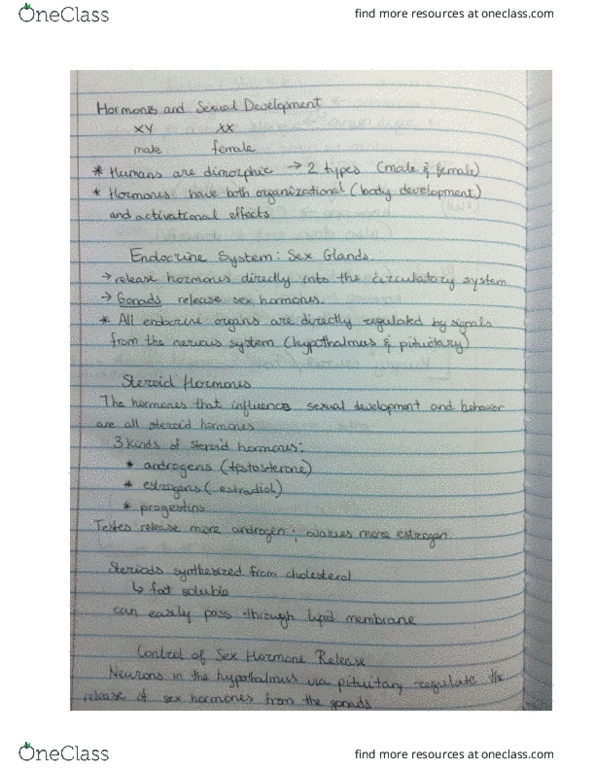 OneClass
find more resources at oneclass.com
Hormones and Sexual Development
XY XX
male female
* Humans are dimorphic → 2 types (male & female)
* Hormones have both organizational (body development)
and activational effects
Endocrine System: Sex Glands
→ release hormones directly into the circulatory system
→ Gonads release sex hormones.
* All endocrine organs are directly regulated by signals
from the nervous system (hypothalmus & pituitary)
Steroid Hormones
The hormones that influences sexual development and behavior
are all steroid hormones
3 kinds of steroid hormones:
* androgens (testosterone)
* estrogens (estradiol)
* progestins
Testes release more androgen; ovaries more estrogen.
Steriods synthesized from cholesterol
↳ fat soluble
can easily pass through lipid membrane
Control of Sex Hormone Release
Neurons in the hypothalmus via pituitary regulate the
release of sex hormones from the gonads
OneClass
find more resources at oneclass.com